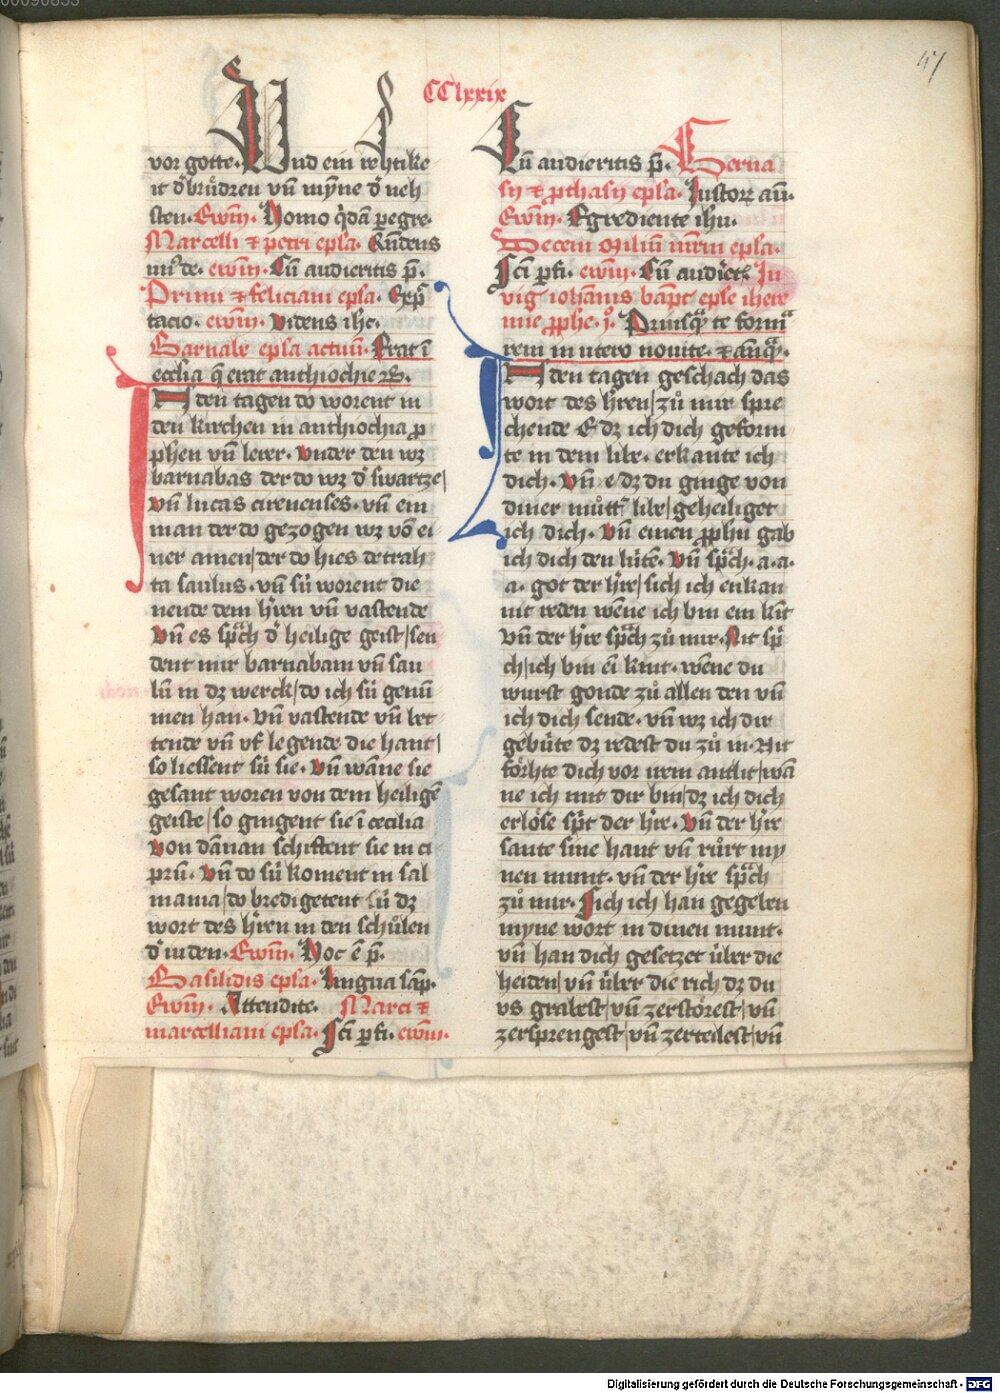 00090855
47
CClxxix
vor gotte. Und ein iehlike
it d̕ brůdren vn̄ myne d̕ neh
sten. Ewm̄. Homo q̇dā peregre.
Marcelli ⁊ petri epl̄a. Rn̄dens
ewm̄. Cū audieritis p̄.
Primi ⁊ feliciani epl̄a. Exp̄
tacio. ewm̄. Videns ihc̄.
Barnabe epl̄a actuū. Erat ī
eccl̄ia q̄ erat anthiochie
In den tagen do worent in
den kirchen in anthiochia p̱
phen vn̄ lerer. vnder den wz
barnabas der do wz d̕ swartze/
vn̄ lucas cirenenses. vn̄ ein
man der do gezogen wz vō ei
ner amen/der do hies tetrah
ta saulus. vn̄ sü worent die
nende dem h̕ren vn̄ vastende
vn̄ es sp̄ch d̕ heilige geist/sen
dent mir barnabam vn̄ sau
lū in dz werck/do ich sü genū
men han. vn̄ vastende vn̄ bet
tende vn̄ vf legende die hant/
so liessent sü sie. vn̄ wāne sie
gesant woren von dem heiligē
geiste/so gingent sie ī cecilia
von dānan schiftent sie in ci
prū. vn̄ do sü koment in sal
mania/do bredigetent sü dz
wort des h̕ren in den schůlen
d̕ iuden. Ewm̄. Hoc ē p̄.
Basilidis epl̄a. lingua sap̄.
Ewm̄. Attendite. Marci ⁊
marcelliani epl̄a. Sc̄i p̱ fi. ewm̄.
Cū audieritis p̄. Gerua
sij ⁊ p̱thasij epl̄a. Iustorꝝ aū.
Ewm̄. Egrediente ihū.
Decem miliū mr̄m epl̄a.
Sc̄i p̱ fi. ewm̄. Cū audiet̄. In
vig̕ iohānis bap̄t epl̄e ihere
mie p̱phe. j̊. Priusq̄ te formᵃ
rem in utero nouite. ⁊ anq̄.
In den tagen geschach das
wort des h̕ren/zů mir spre
chende E dz ich dich geform
te in dem libe. erkante ich
dich. vn̄ e dz du ginge von
diner můtt̕ libe/geheiliget
ich dich. vn̄ einen p̱phn̄ gab
ich dich den lütē. vn̄ sp̄ch. a.a.
a. got der h̕re/sich ich enkan
nit reden wēne ich bin ein kīt
vn̄ der h̕re sp̄ch zů mir. Nit sp̄
ch/ich bin eī kint. wēne du
wurst gonde zů allen den vn̄
ich dich sende. vn̄ wz ich dir
gebüte dz redest du zů in. Nit
förhte dich vor irem antlit/wā
ne ich mit dir bin/dz ich dich
erlöse sp̄t der h̕re. vn̄ der h̕re
sante sine hant vn̄ růrt my
nen munt. vn̄ der h̕re sp̄ch
zů mir. Sich ich han gegeben
myne wort in dinen munt.
vn̄ han dich gesetzet über die
heiden/vn̄ über die rich dz du
vs grabest/vn̄ zerstörest/vn̄
zersprengest/vn̄ zerteilest/vn̄
Digitalisierung gefördert durch die Deutsche Forschungsgemeinschaft - DFG